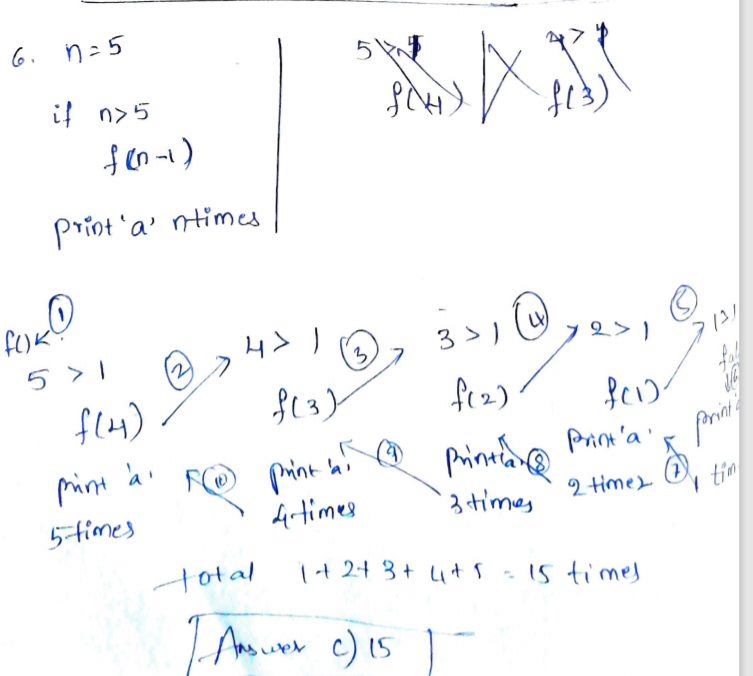 6. n=5
if n>5
f(n-1)
print 'a' ntimes
5>
f(4)
f(3)
f()
1
5 > 1
f(4)
print 'a'
5 times
2
4 > 1
f(3)
print 'a'
4 times
10
3
3 > 1
f(2)
print 'a'
3 times
9
4
2 > 1
f(1)
print 'a'
2 times
8
5
1>1
print
1 tim
7
total 1+2+3+4+5 = 15 times
Answer c) 15